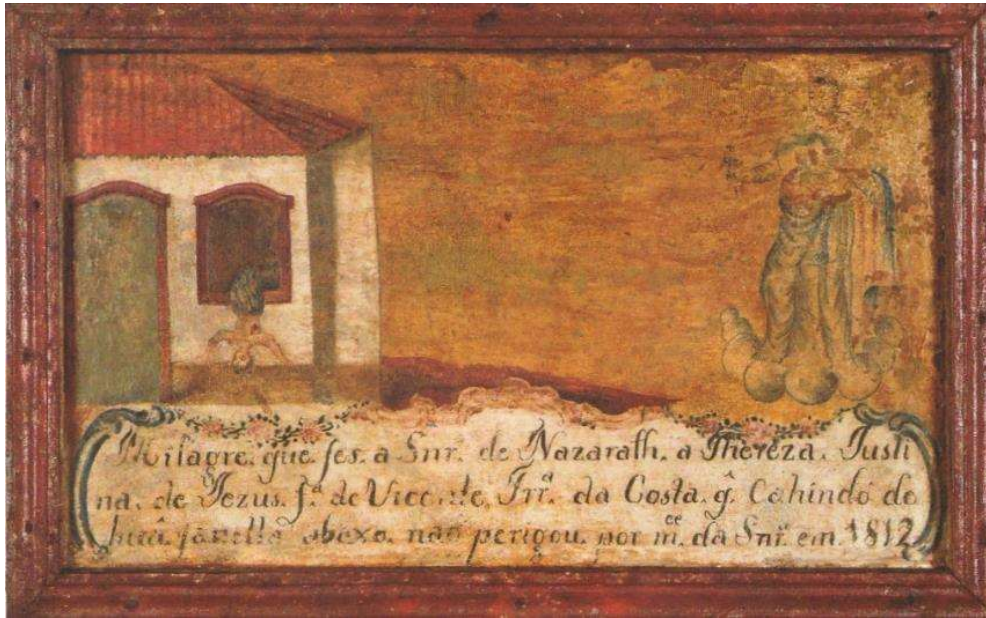 Milagre. que fes. a Snrª. de Nazarath. a Thereza. Justi
na. de Jezus. fª. de Vicente. Frrª. da Costa. q̂. Cahindo de
huã. janella abaxo. não perigou. por m.ce da Snrª. em. 1812